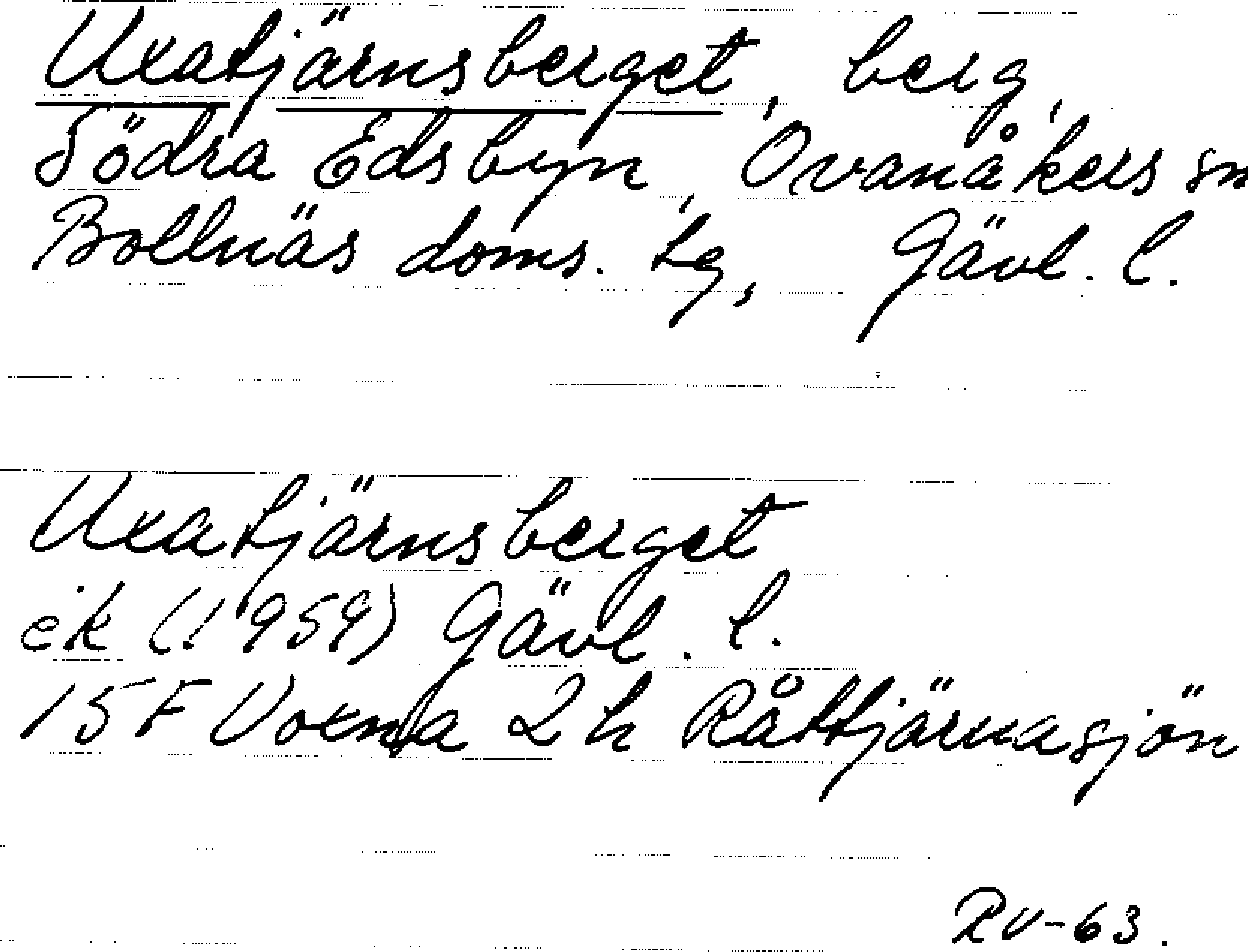 Uxatjärnsberget, berg,
Södra Edsbyn, Ovanåkers sn
Bollnäs doms. tg, Gävl. l.
Uxatjärnsberget
ek (1959) Gävl. l.
15 F Voxna 2 h Råttjärnasjön
RV-63.